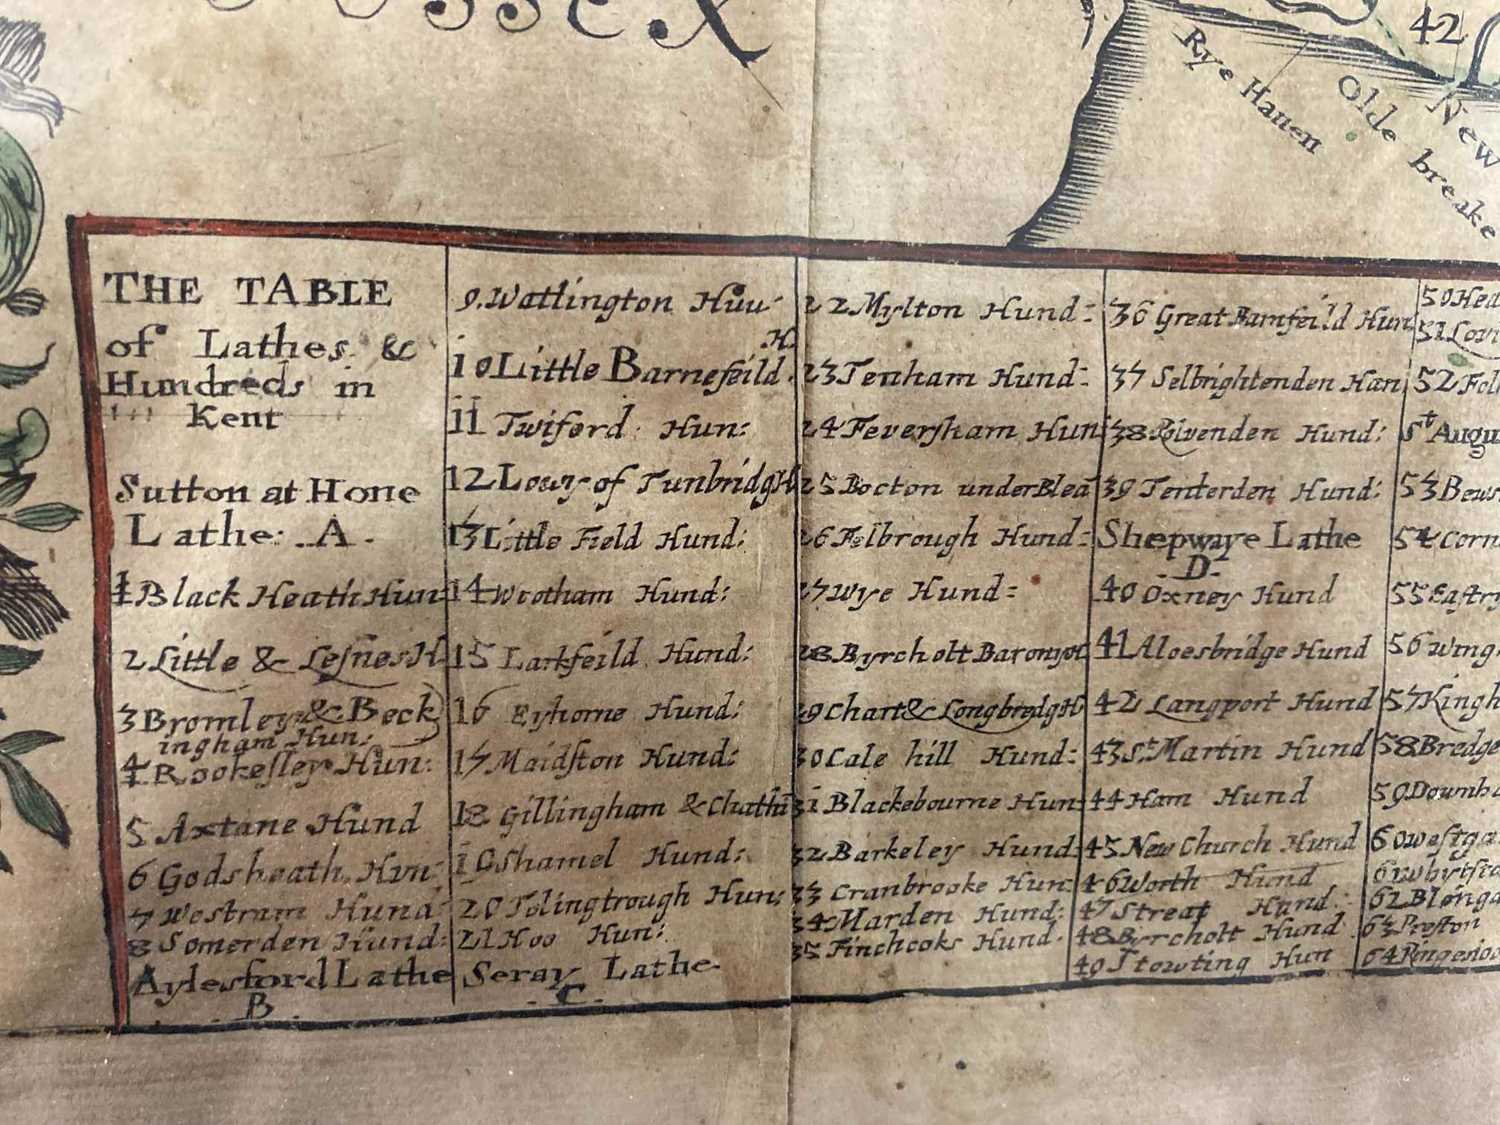 SUSSEX
42
Rye Hauen
Olde breake
New
THE TABLE
of Lathes &
Hundreds in
Kent
Sutton at Hone
Lathe: A.
1 Black Heath Hun:
2 Little & Lesnes H
3 Bromley & Beck
ingham Hun:
4 Rookesley Hun:
5 Axtane Hund
6 Godsheath Hun:
7 Westram Hund:
8 Somerden Hund:
Aylesford Lathe
B.
9. Watlington Huu:
10 Little Barnefeild H.
11 Twiford Hun:
12 Lowy of Tunbridg H
13 Little Field Hund:
14 Wrotham Hund:
15 Larkfeild Hund:
16 Eyhorne Hund:
17 Maidston Hund:
18 Gillingham & Chath
19 Shamel Hund:
20 Tolingtrough Hun:
21 Hoo Hun:
Seray Lathe
C.
22 Mylton Hund:
23 Tenham Hund:
24 Feversham Hun
25 Bocton under Blea
26 Felbrough Hund:
27 Wye Hund:
28 Byrcholt Baronye
29 Chart & Longbredg H
30 Cale hill Hund:
31 Blackebourne Hun:
32 Barkeley Hund.
33 Cranbrooke Hun:
34 Marden Hund:
35 Finchcoks Hund.
36 Great Barnfeild Hun
37 Selbrightenden Hun
38 Rolvenden Hund:
39 Tenterden Hund:
Shepwaye Lathe
D.
40 Oxney Hund
41 Aloesbridge Hund
42 Langport Hund
43 St. Martin Hund
44 Ham Hund
45 New Church Hund
46 Worth Hund
47 Streat Hund
48 Byrcholt Hund
49 Stowting Hun
50 Hea
51 Lovi
52 Fol
St Augu
53 Bews
54 Corn
55 Eastry
56 Wing
57 Kingh
58 Bredge
59 Downh
60 Westga
61 Whytsta
62 Blenga
63 Preston
64 Ringesloo